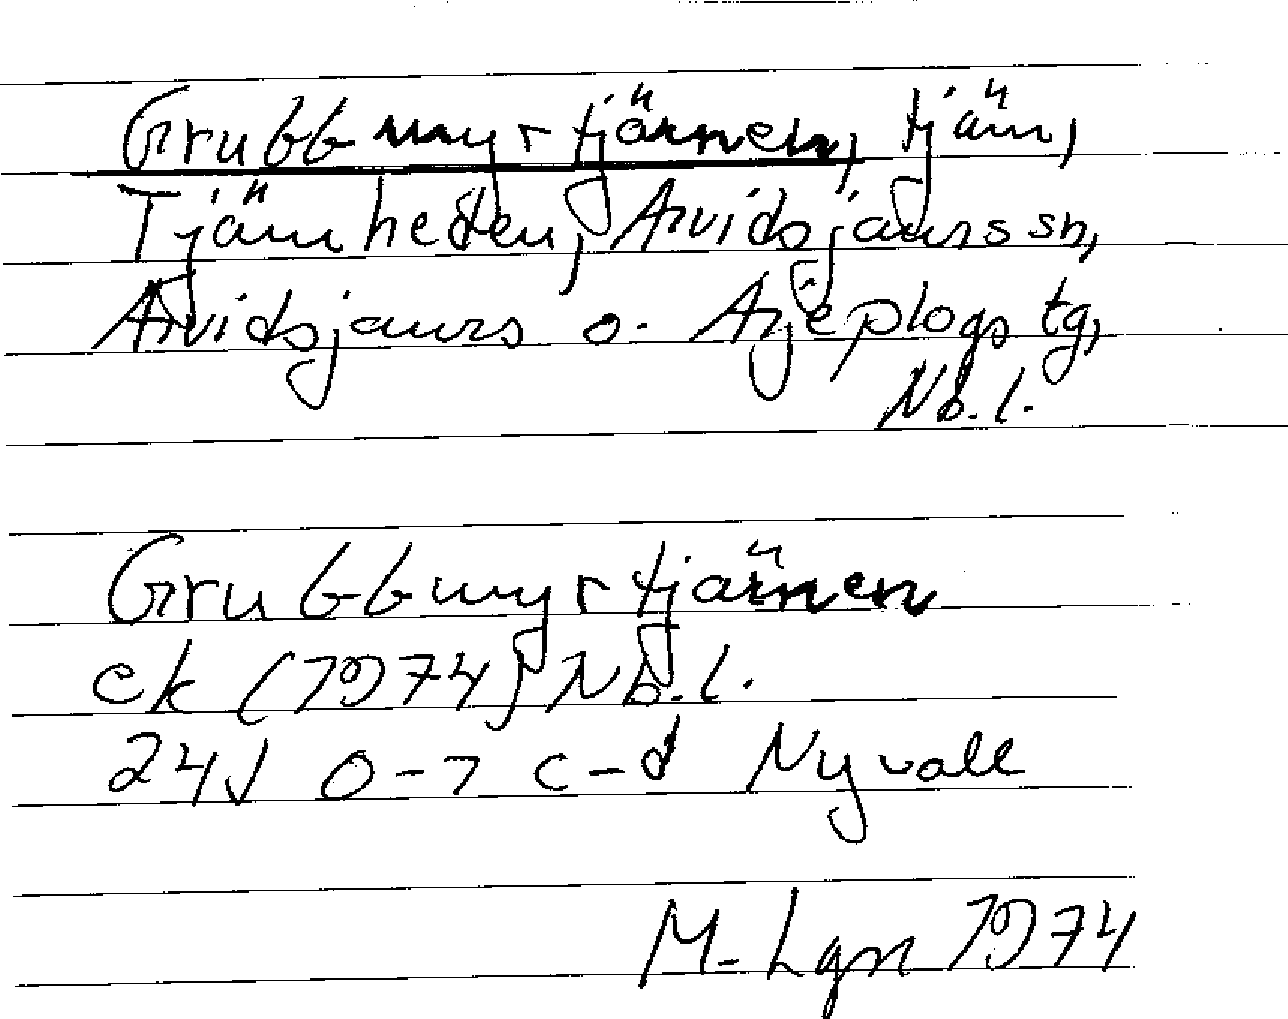 Grubbmyrtjärnen, tjärn,
Tjärnheden, Arvidsjaurs sn,
Arvidsjaurs o. Arjeplogs tg,
Nb.l.
Grubbmyrtjärnen
ek (1974) Nb.l.
24J 0-1 c-d Nyvall
M-Lgn 1974